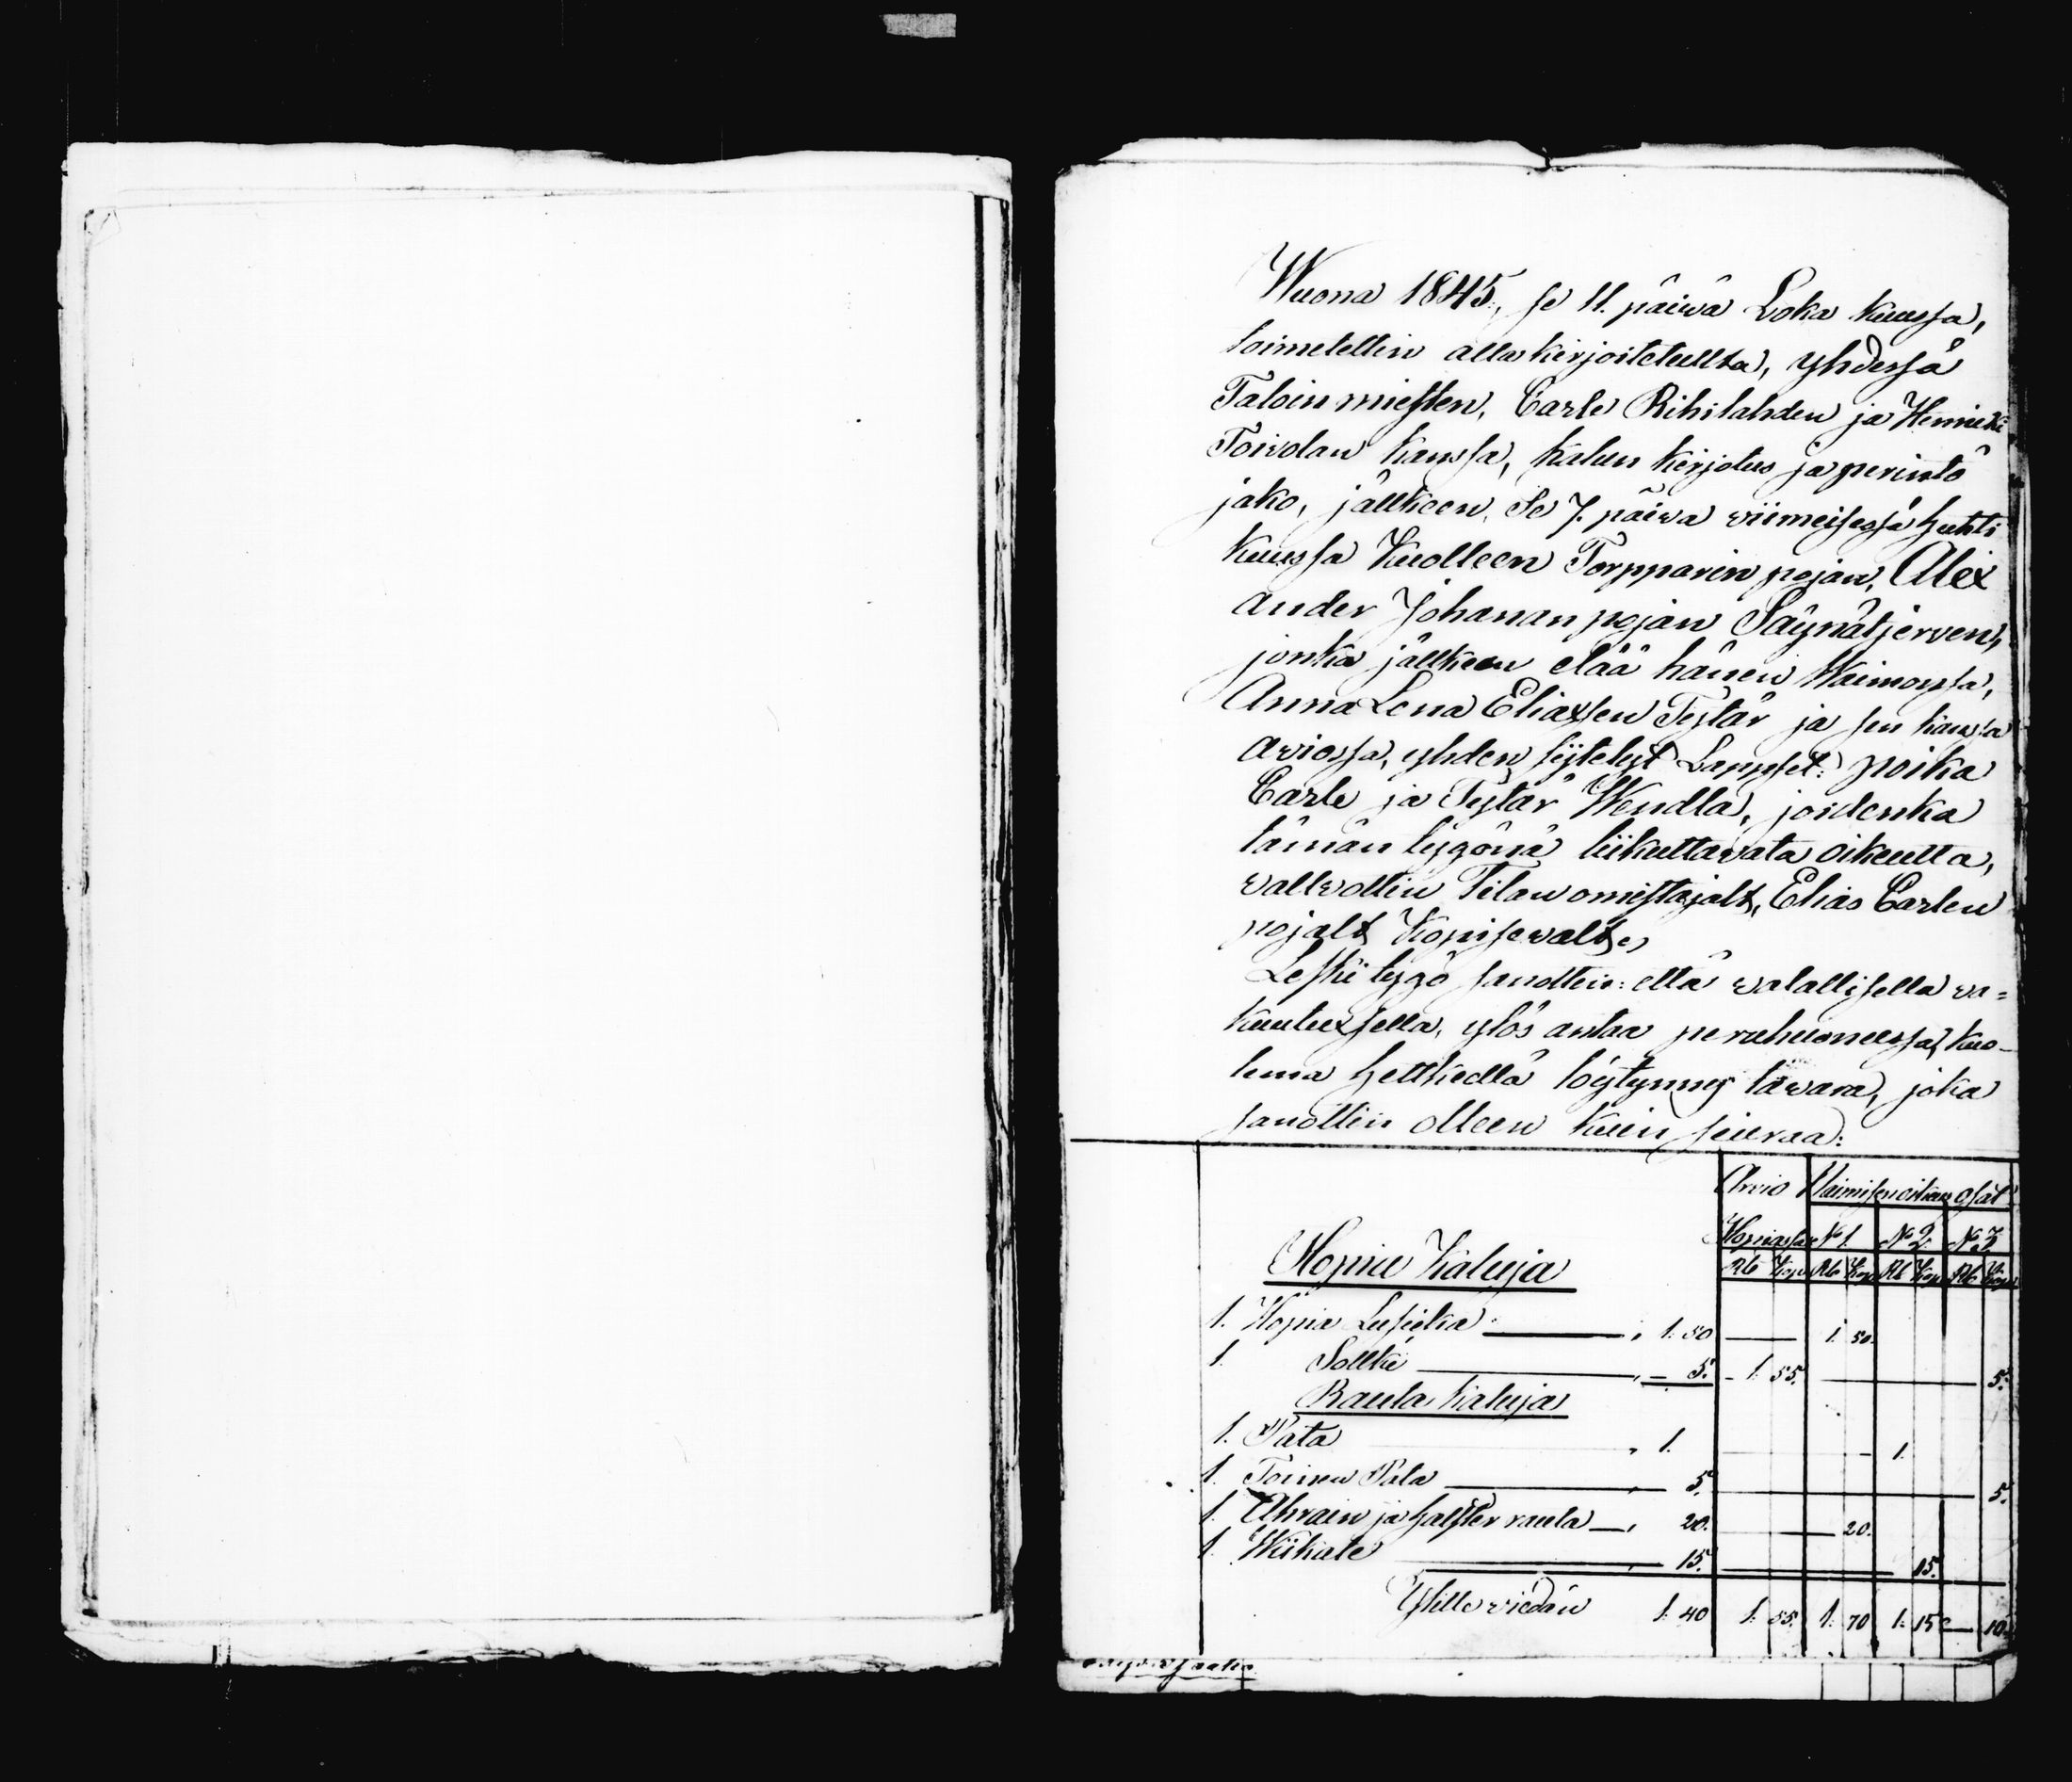 Wuona 1845, se 11. päiwä Loka kuussa,
toimetettin allakirjoitetullta, yhdessä
Taloin miesten, Carle Rihilahden ja Heinicki
Toivolan kanssa, kalun kirjotus ja perintö
jako, jällkeen, se 7. päiwä wiimeisessä huhti
kuussa kuolleen Torpparin pojan, Alex
ander Johanan pojan Säynätjerven,
jonka jällkeen elää hänen Waimonsa,
Anna Lena Eliaxsen Tytär ja sen kanssa
aviossa, yhden sÿtetyt Lappset: poika
Carle ja Tytär Wendla, joidenka
tämän tÿgönä liikuttawata oikeutta,
wallwottin Tilan omistajalt, Elias Carlen
pojalt Kopisewalt.
Leski tygö sanottin: että walallisella va=
kuutuxsella, ylös antaa perähuoneessa, kuo-
lema hetkellä löytynny tawara, joka
sanottin olleen kuin seuraa:
Arvio Naimisen oikeus osat
Hopiassa No 1. No 2. No 3
Rb Kop Rb Kop Rb Kop Rb Kop
Hopia Kaluja
1. Hopia Lusicka 1. 50 1. 50.
1. Sollki — 5. — 1. 55. 5.
Rauta kaluja
1. Pata 1. 1.
1. Toinen Pata 5. 5.
1. Ahrain ja halster rauta 20. 20.
1. Wiikate 15. 15.
Ylitte viedän 1. 40 1. 55. 1. 70 1. 15 — 10.